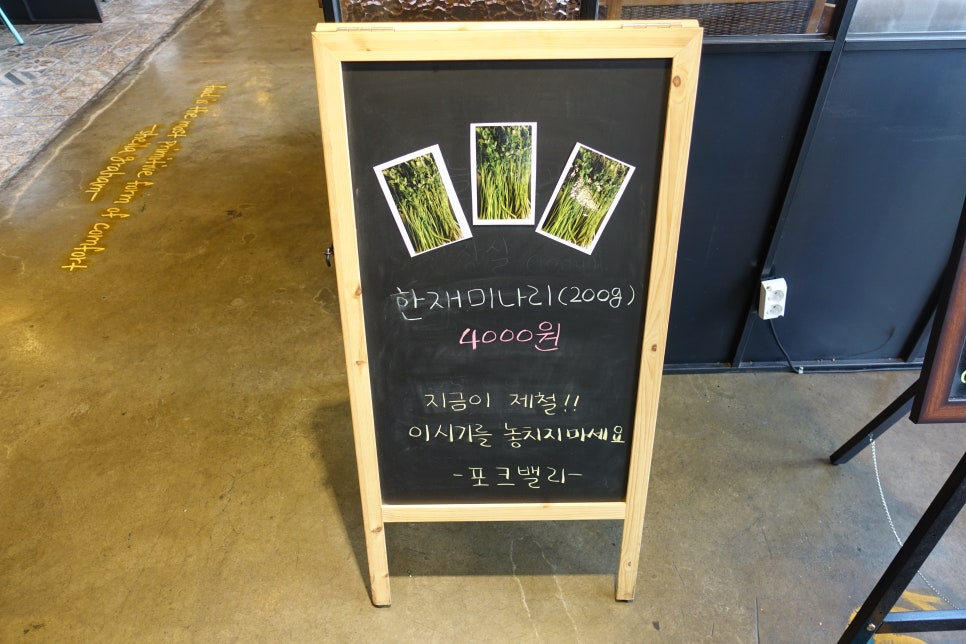 한재미나리(200g)
4000원
지금이 제철!!
이시기를 놓치지마세요
-포크밸리-
food is the most primitive form of comfort
-sheila graham-